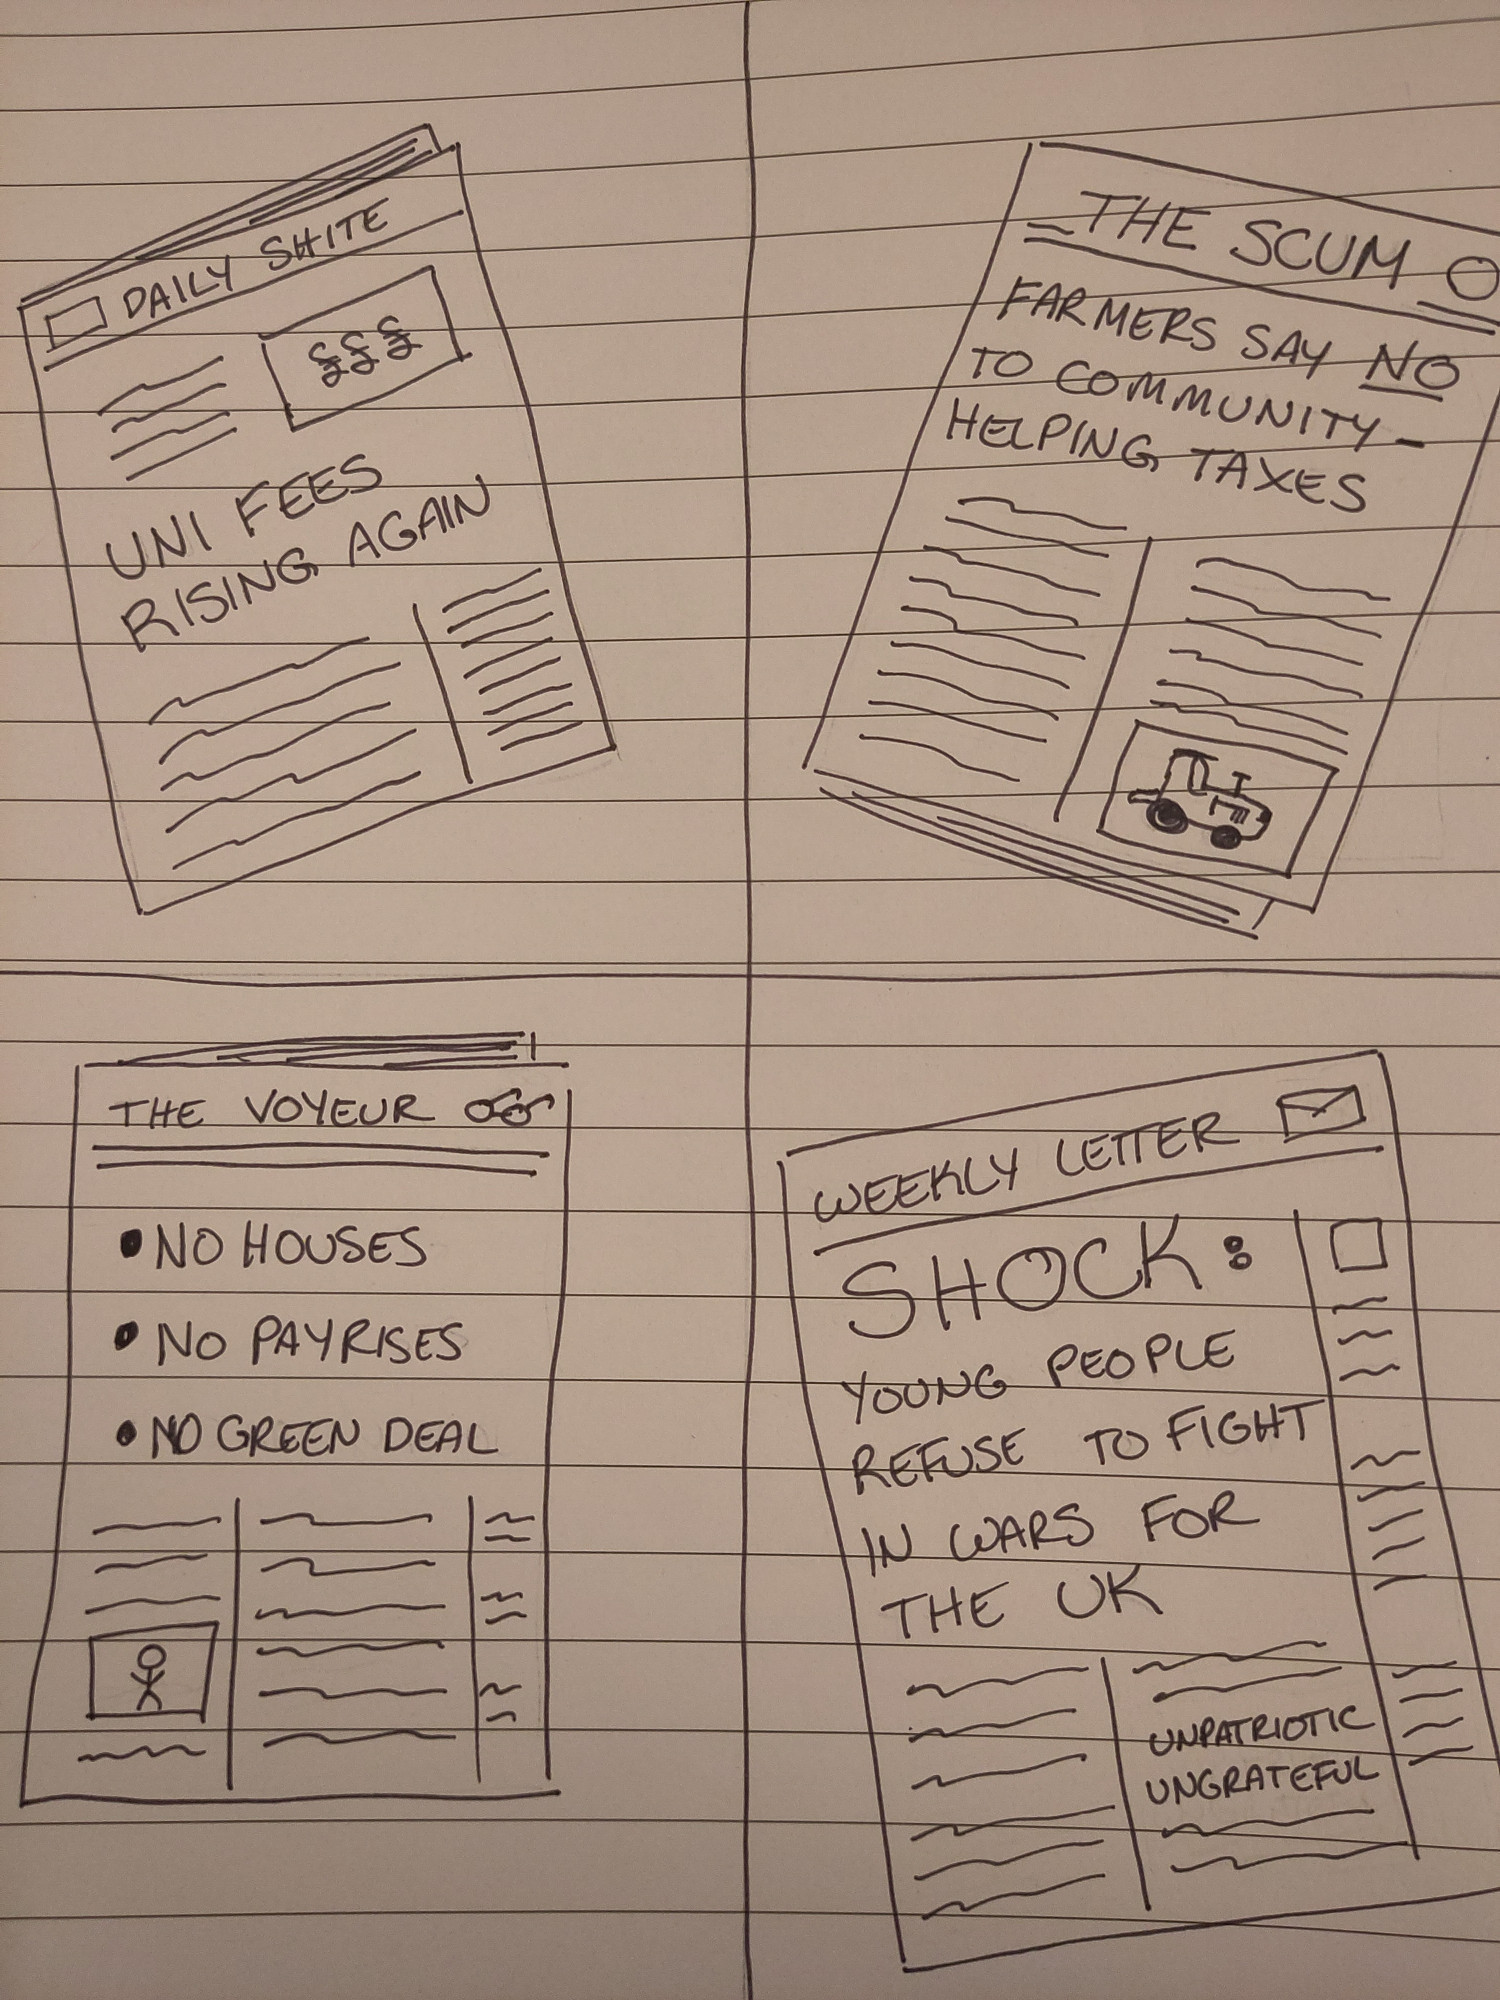 DAILY SHITE
£££
UNI FEES
RISING AGAIN
THE SCUM
FARMERS SAY NO
TO COMMUNITY-
HELPING TAXES
THE VOYEUR
• NO HOUSES
• NO PAYRISES
• NO GREEN DEAL
WEEKLY LETTER
SHOCK:
YOUNG PEOPLE
REFUSE TO FIGHT
IN WARS FOR
THE UK
UNPATRIOTIC
UNGRATEFUL